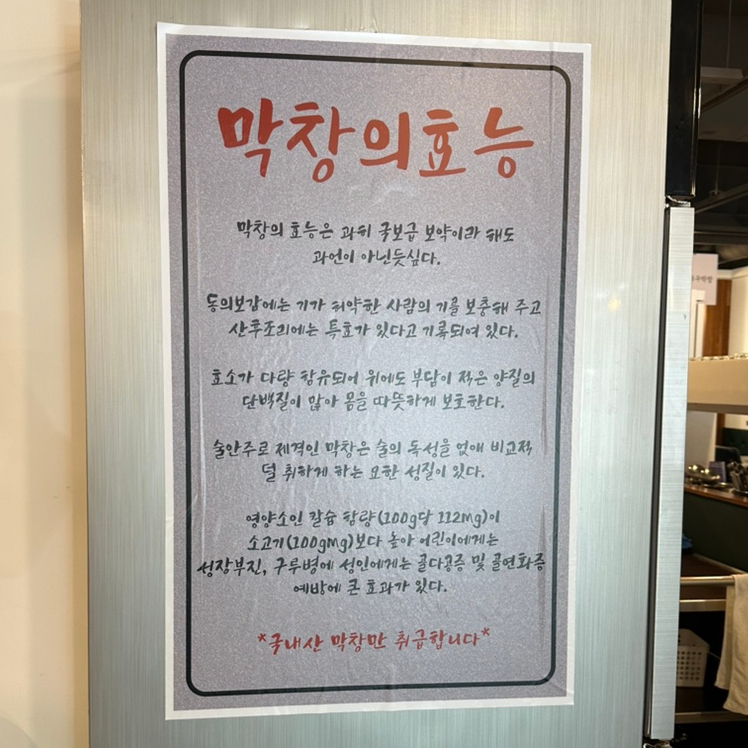 막창의효능
막창의 효능은 과히 국보급 보약이라 해도
과언이 아닌듯싶다.
동의보감에는 기가 허약한 사람의 기를 보충해 주고
산후조리에는 특효가 있다고 기록되여 있다.
효소가 다량 함유되어 위에도 부담이 적은 양질의
단백질이 많아 몸을 따뜻하게 보호한다.
술안주로 제격인 막창은 술의 독성을 없애 비교적
덜 취하게 하는 묘한 성질이 있다.
영양소인 칼슘 함량(100g당 112mg)이
소고기(100gmg)보다 높아 어린이에게는
성장부진, 구루병에 성인에게는 골다공증 및 골연화증
예방에 큰 효과가 있다.
*국내산 막창만 취급합니다*